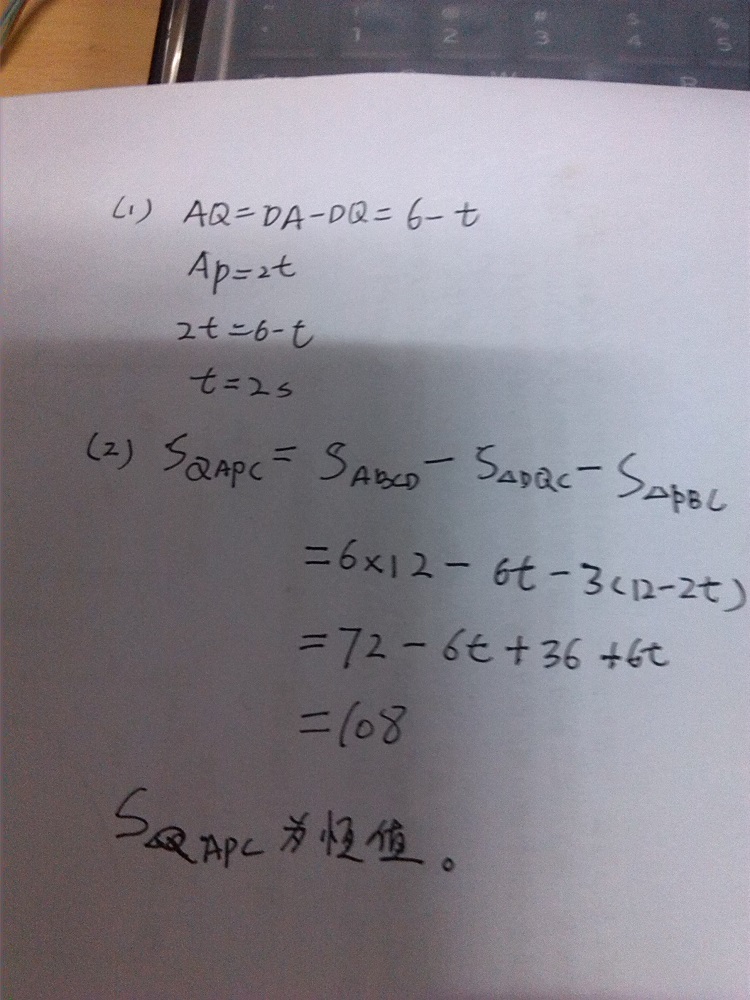 1 2 3 $ 4 % 5
(1) AQ=DA-DQ=6-t
AP=2t
2t=6-t
t=2s
(2) SQAPC=SABCD-S△DQC-S△PBC
=6×12-6t-3(12-2t)
=72-6t+36+6t
=108
SQAPC为恒值。